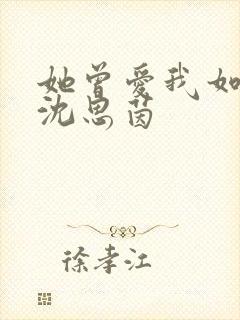 她曾爱我如
沈思茵
徐孝江